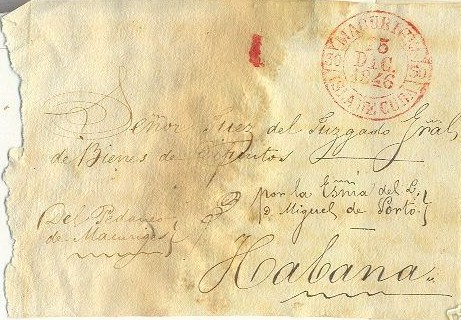 MACURIGES
15
DIC.
1846
ISLA DE CUBA
Señor Juez del Juzgado Gñal,
de Bienes de Difuntos
por la Esñia del L.
D Miguel de Porto.
Del Pedaneo
de Macuriges
Habana.